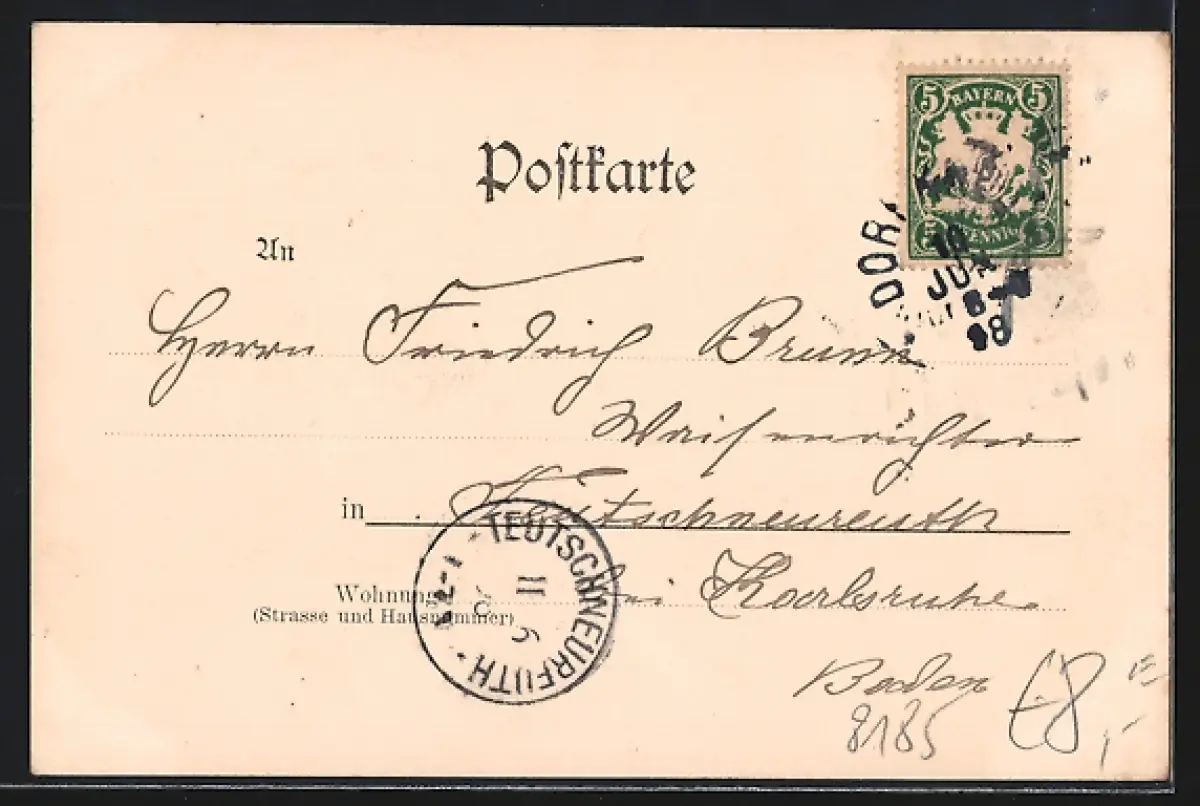 5 BAYERN 5
5 PFENNIG 5
10
JUN
8-
98
Postkarte
An
Herrn Friedrich Brunn
Waisenrichter
in Teutschneureuth
Wohnung
(Strasse und Hausnummer)
bei Karlsruhe.
TEUTSCHNEUREUTH
11
6
Baden
8185